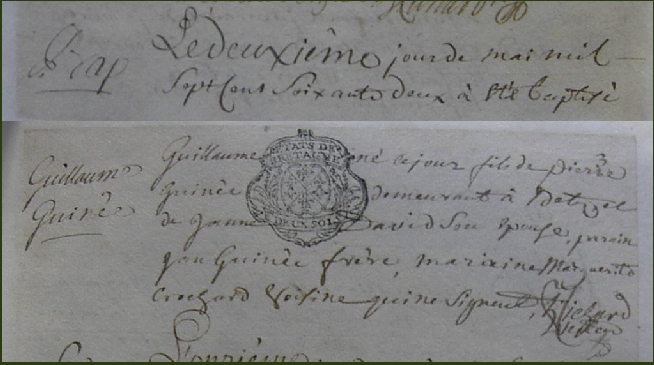 Le deuxième jour de mai mil
Sept Cent Soixante deux à été baptisé
Guillaume
Guinée
Guillaume né ce jour fils de pierre
Guinée demeurant à
de Jeanne David Son épouse, parain
Guinée frère, maraine Marguerite
Crochard Voisine qui ne Signent,
ETATS DE
BRETAGNE
DEUX SOLS